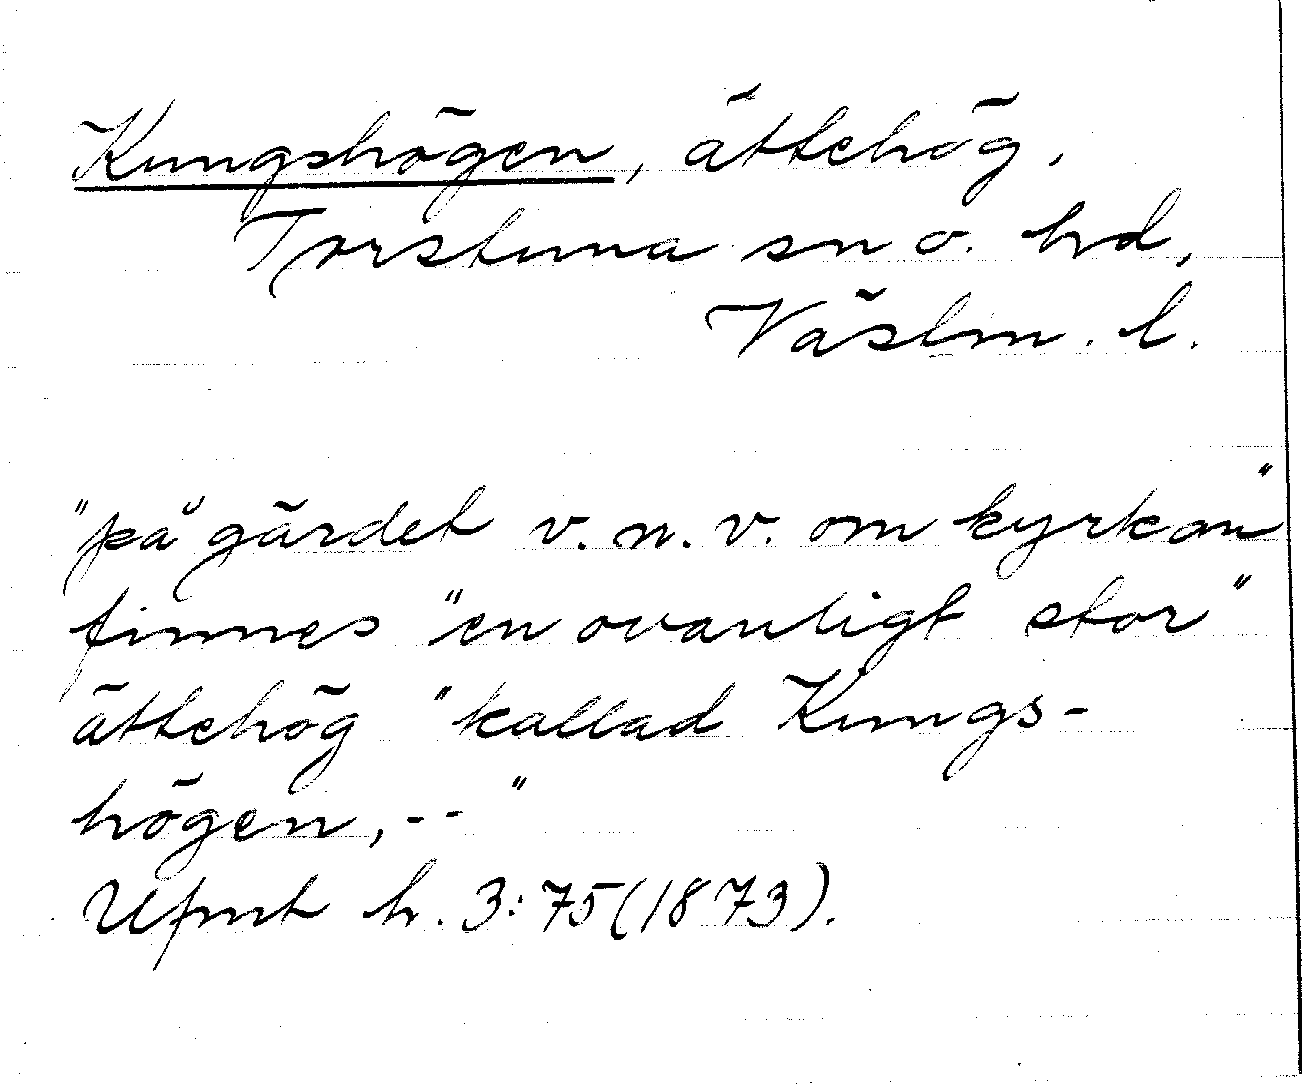 Kungshögen, ättehög.
Torstuna sn o. hd,
Västm. l.
"på gärdet v.n.v. om kyrkan"
finnes "en ovanligt stor"
ättehög "kallad Kungs-
högen,--"
Ufmt h. 3:75(1873).